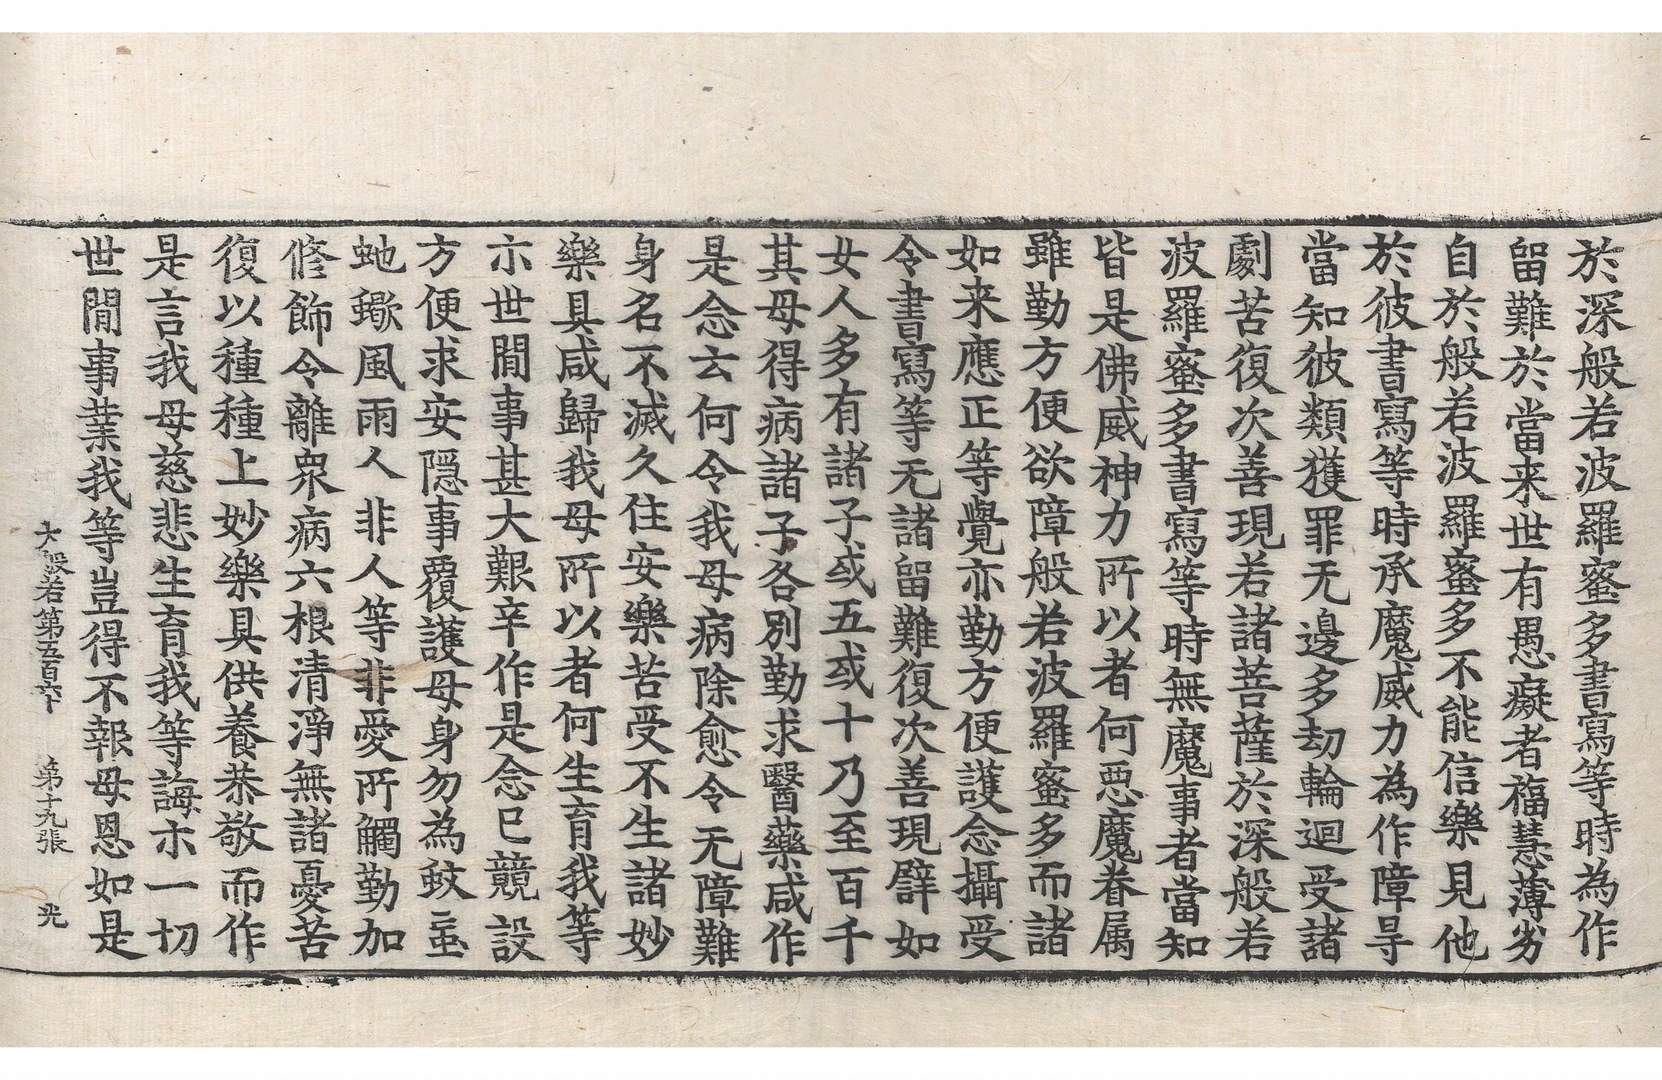 於深般若波羅蜜多書寫等時為作
留難於當来世有愚癡者福慧薄劣
自於般若波羅蜜多不能信樂見他
於彼書寫等時承魔威力為作障㝵
當知彼類獲罪无邊多劫輪迴受諸
劇苦復次善現若諸菩薩於深般若
波羅蜜多書寫等時無魔事者當知
皆是佛威神力所以者何惡魔眷属
雖勤方便欲障般若波羅蜜多而諸
如来應正等覺亦勤方便護念攝受
令書寫等无諸留難復次善現譬如
女人多有諸子或五或十乃至百千
其母得病諸子各別勤求醫藥咸作
是念云何令我母病除愈令无障難
身名不滅久住安樂苦受不生諸妙
樂具咸歸我母所以者何生育我等
示世間事甚大艱辛作是念已競設
方便求安隱事覆護母身勿為蚊䖟
虵蠍風雨人非人等非愛所觸勤加
修飾令離衆病六根清淨無諸憂苦
復以種種上妙樂具供養恭敬而作
是言我母慈悲生育我等誨示一切
世間事業我等豈得不報母恩如是
大般若第五百六卞 第十九張 光